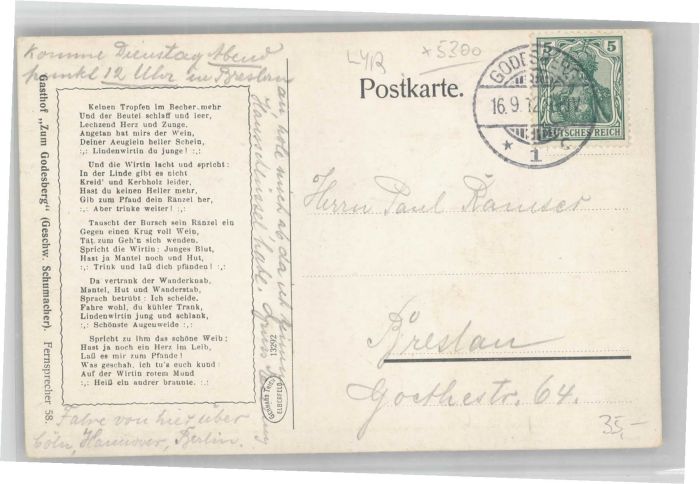 Komme Dienstag Abend
punkt 12 Uhr in Breslau
an, hole mich ab da ist keinen
Hausschlüssel habe. Gruss
Fahre von hier über
Cöln, Hannover, Berlin.
Gasthof „Zum Godesberg" (Geschw. Schumacher). Fernsprecher 58.
Keinen Tropfen im Becher mehr
Und der Beutel schlaff und leer,
Lechzend Herz und Zunge.
Angetan hat mirs der Wein,
Deiner Aeuglein heller Schein,
:,: Lindenwirtin du junge! :,:
Und die Wirtin lacht und spricht:
In der Linde gibt es nicht
Kreid' und Kerbholz leider,
Hast du keinen Heller mehr,
Gib zum Pfand dein Ränzel her,
:,: Aber trinke weiter! :,:
Tauscht der Bursch sein Ränzel ein
Gegen einen Krug voll Wein,
Tät zum Geh'n sich wenden,
Spricht die Wirtin: Junges Blut,
Hast ja Mantel noch und Hut,
:,: Trink und laß dich pfänden! :,:
Da vertrank der Wanderknab,
Mantel, Hut und Wanderstab,
Sprach betrübt: Ich scheide.
Fahre wohl, du kühler Trank,
Lindenwirtin jung und schlank,
:,: Schönste Augeuweide :,:
Spricht zu ihm das schöne Weib:
Hast ja noch ein Herz im Leib,
Laß es mir zum Pfande!
Was geschah, ich tu's euch kund:
Auf der Wirtin rotem Mund
:,: Heiß ein audrer braunte. :,:
13292
ELBERFELD
LYR
*5300
Postkarte.
GODESBERG
16.9.12
* 1 c
5 5
DEUTSCHES REICH
Herrn Paul
Breslau
Goethestr. 64.
35,-